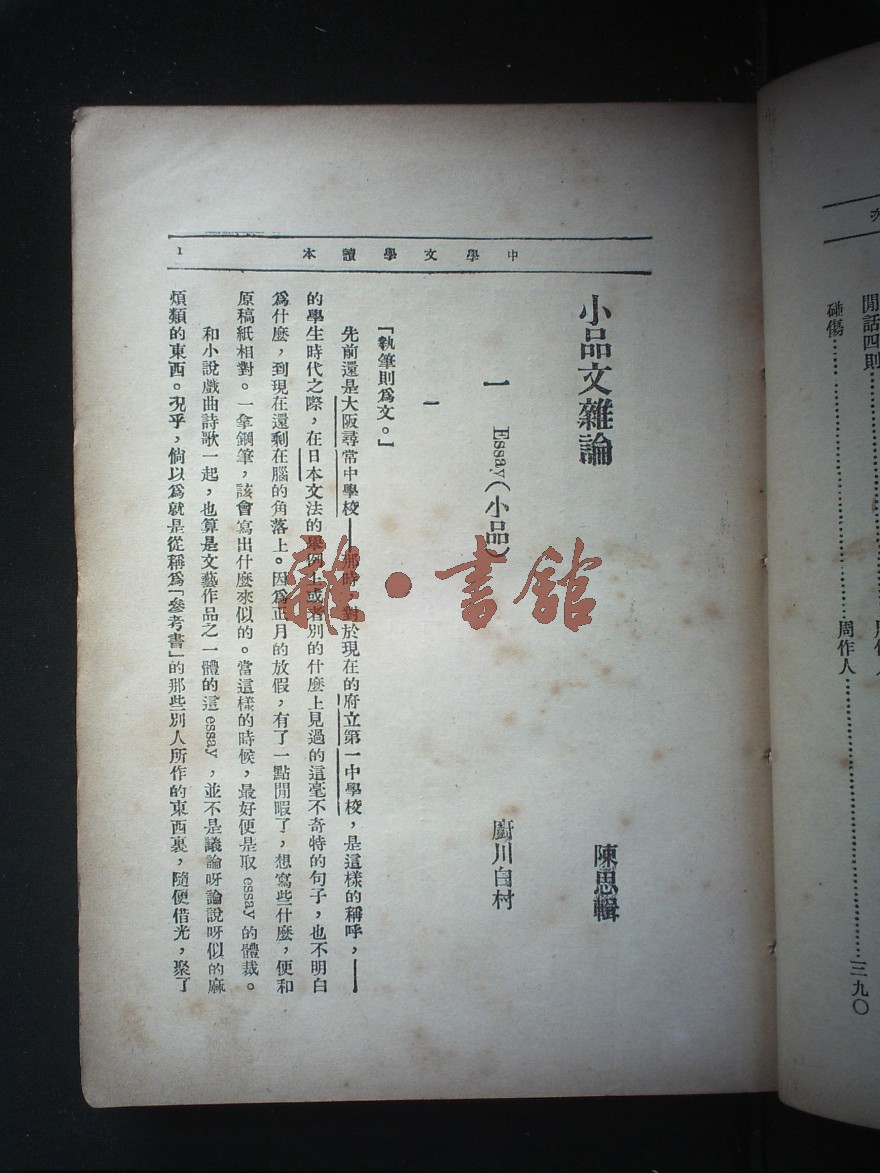 中學文學讀本
1
小品文雜論
陳思輯
一 Essay(小品)
廚川白村
一
「執筆則爲文。」
先前還是大阪尋常中學校——那時,對於現在的府立第一中學校,是這樣的稱呼,——
的學生時代之際,在日本文法的舉例上或者別的什麼上見過的這毫不奇特的句子,也不明白
爲什麼,到現在還剩在腦的角落上。因爲正月的放假,有了一點閒暇了,想寫些什麼,便和
原稿紙相對。一拿鋼筆,該會寫出什麼來似的。當這樣的時候,最好便是取 essay 的體裁。
和小說戲曲詩歌一起,也算是文藝作品之一體的這 essay,並不是議論呀論說呀似的麻
煩類的東西。況乎,倘以爲就是從稱爲「參考書」的那些別人所作的東西裏,隨便借光,聚了
閒話四則
碰傷……周作人……三九〇
雜·書館